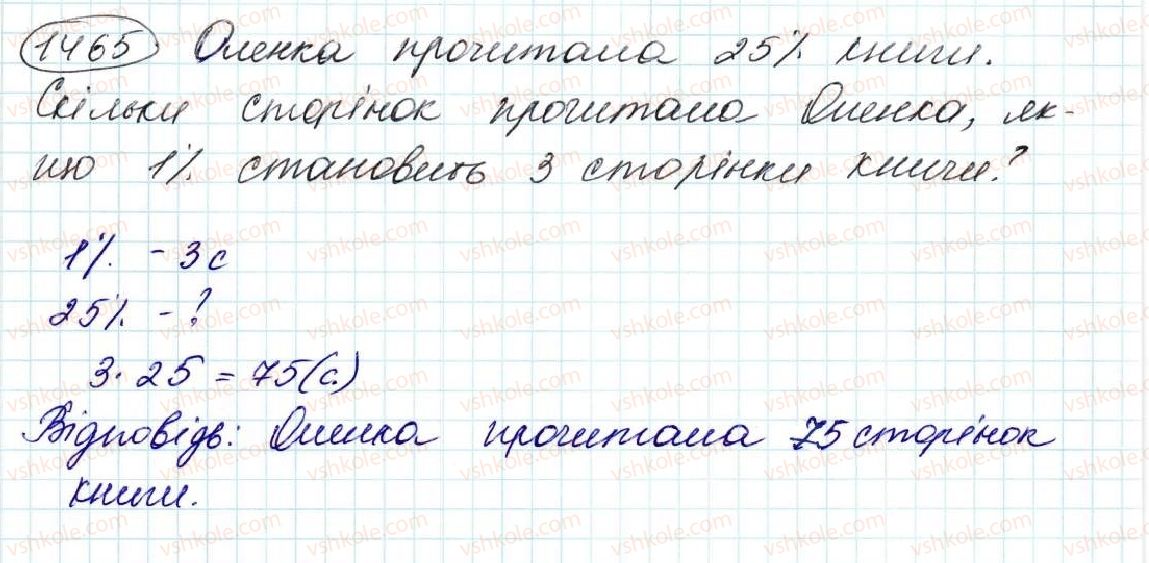 1465 Оленка прочитала 25% книги.
Скільки сторінок прочитала Оленка, як-
що 1% становить 3 сторінки книги?
1% - 3 с
25% - ?
3 · 25 = 75 (с.)
Відповідь: Оленка прочитала 75 сторінок
книги.